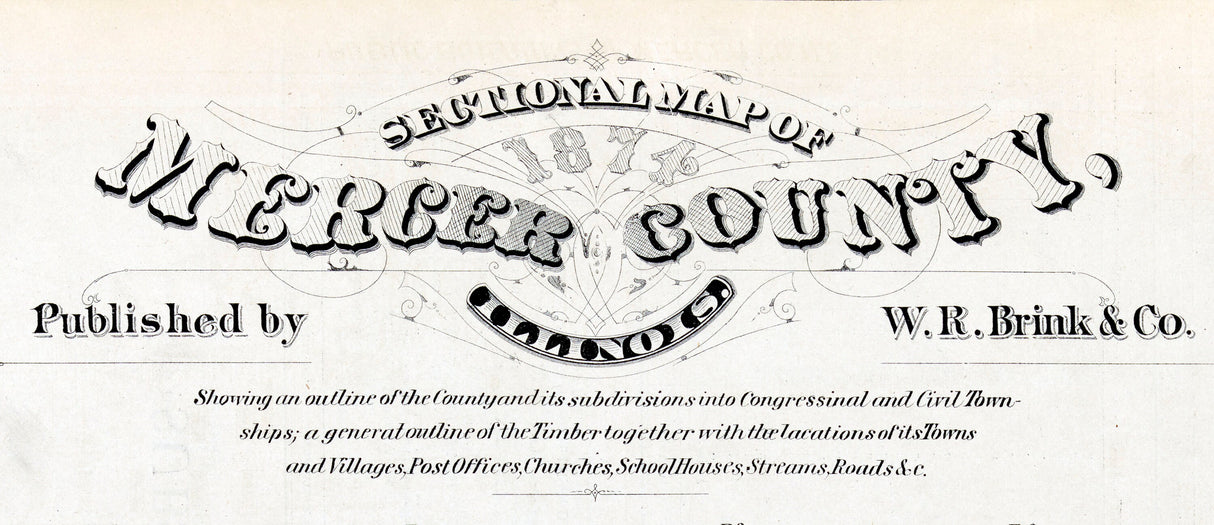 SECTIONAL MAP OF
1874
MERCER COUNTY,
ILLINOIS.
Published by W. R. Brink & Co.
Showing an outline of the County and its subdivisions into Congressinal and Civil Town-
ships; a general outline of the Timber together with the lacations of its Towns
and Villages, Post Offices, Churches, School Houses, Streams, Roads &c.